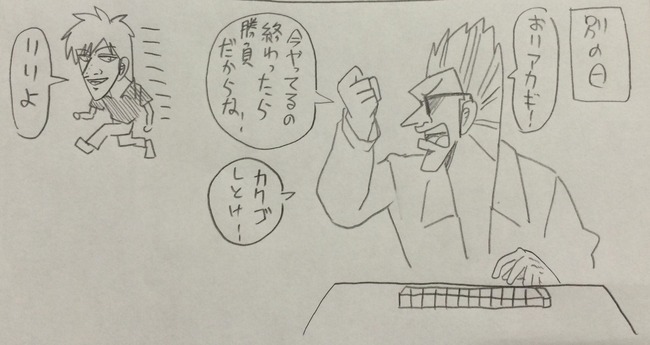 別の日
おいアカギ!
今やってるの
終わったら
勝負
だからな!
カクゴ
しとけー
いいよ